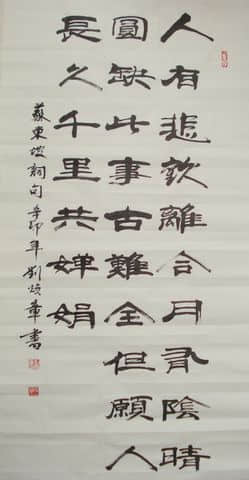 人有悲欢離合月有陰晴
圓缺此事古難全但願人
長久千里共嬋娟
蘇東坡詞句辛卯年劉頌章書